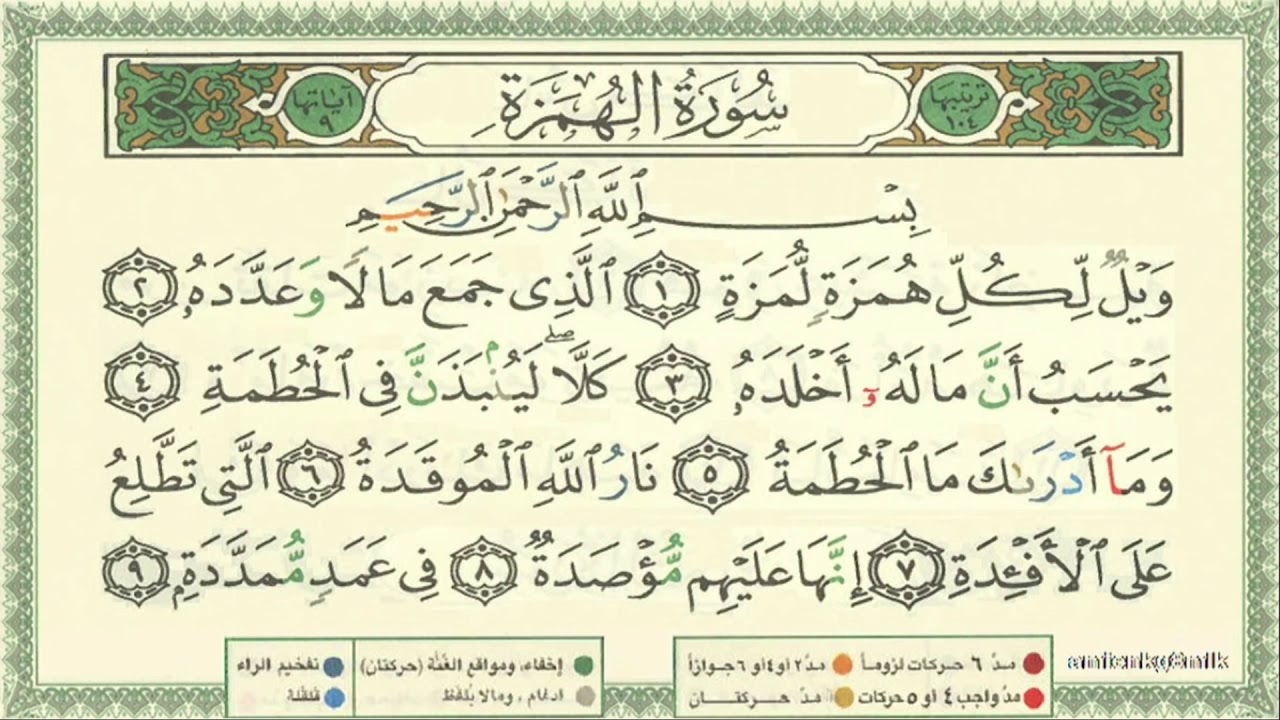 ترتيبها ١٠٤ سُورَةُ الهُمَزَةِ آياتها ٩
بِسْمِ ٱللَّهِ ٱلرَّحْمَٰنِ ٱلرَّحِيمِ
وَيْلٌ لِّكُلِّ هُمَزَةٍ لُّمَزَةٍ ١ ٱلَّذِى جَمَعَ مَالًا وَعَدَّدَهُۥ ٢
يَحْسَبُ أَنَّ مَالَهُۥٓ أَخْلَدَهُۥ ٣ كَلَّا ۖ لَيُنۢبَذَنَّ فِى ٱلْحُطَمَةِ ٤
وَمَآ أَدْرَىٰكَ مَا ٱلْحُطَمَةُ ٥ نَارُ ٱللَّهِ ٱلْمُوقَدَةُ ٦ ٱلَّتِى تَطَّلِعُ
عَلَى ٱلْأَفْـِٔدَةِ ٧ إِنَّهَا عَلَيْهِم مُّؤْصَدَةٌ ٨ فِى عَمَدٍ مُّمَدَّدَةٍۭ ٩
مدّ ٦ حركات لزوماً مدّ ٢ أو ٤ أو ٦ جوازاً إخفاء، ومواقع الغُنَّة (حركتان) تفخيم الراء
مدّ واجب ٤ أو ٥ حركات مدّ حركتان ادغام، ومالا يُلفَظ قلقلة